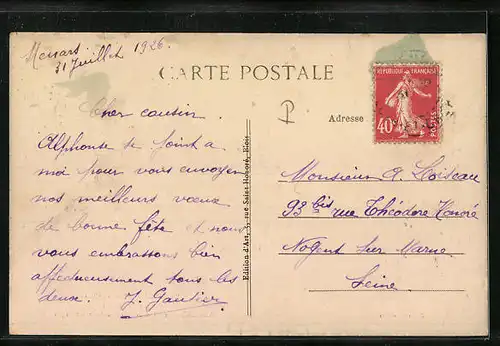 Menars
31 Juillet 1926.
CARTE POSTALE
Cher cousin
Alphonse se joint a
moi pour vous envoyer
nos meilleurs vœux
de bonne fête et nous
vous embrassons bien
affectueusement tous les
deux. J. Gautier
P
Adresse
REPUBLIQUE FRANÇAISE
40c
POSTES
Edition d'Art, 3, rue Saint Honoré, Blois
Monsieur A. Loiseau
93 bis rue Théodore Honoré
Nogent sur Marne
Seine